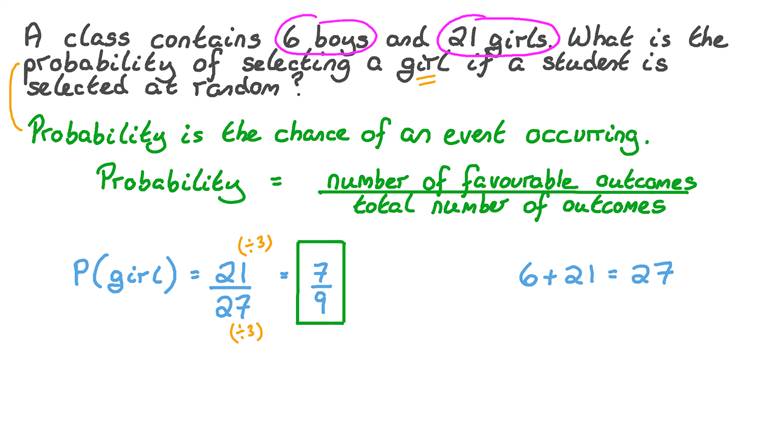 A class contains 6 boys and 21 girls. What is the
probability of selecting a girl if a student is
selected at random?
Probability is the chance of an event occurring.
Probability = number of favourable outcomes
total number of outcomes
(÷3)
P(girl) = 21 = 7
27 9
(÷3)
6 + 21 = 27